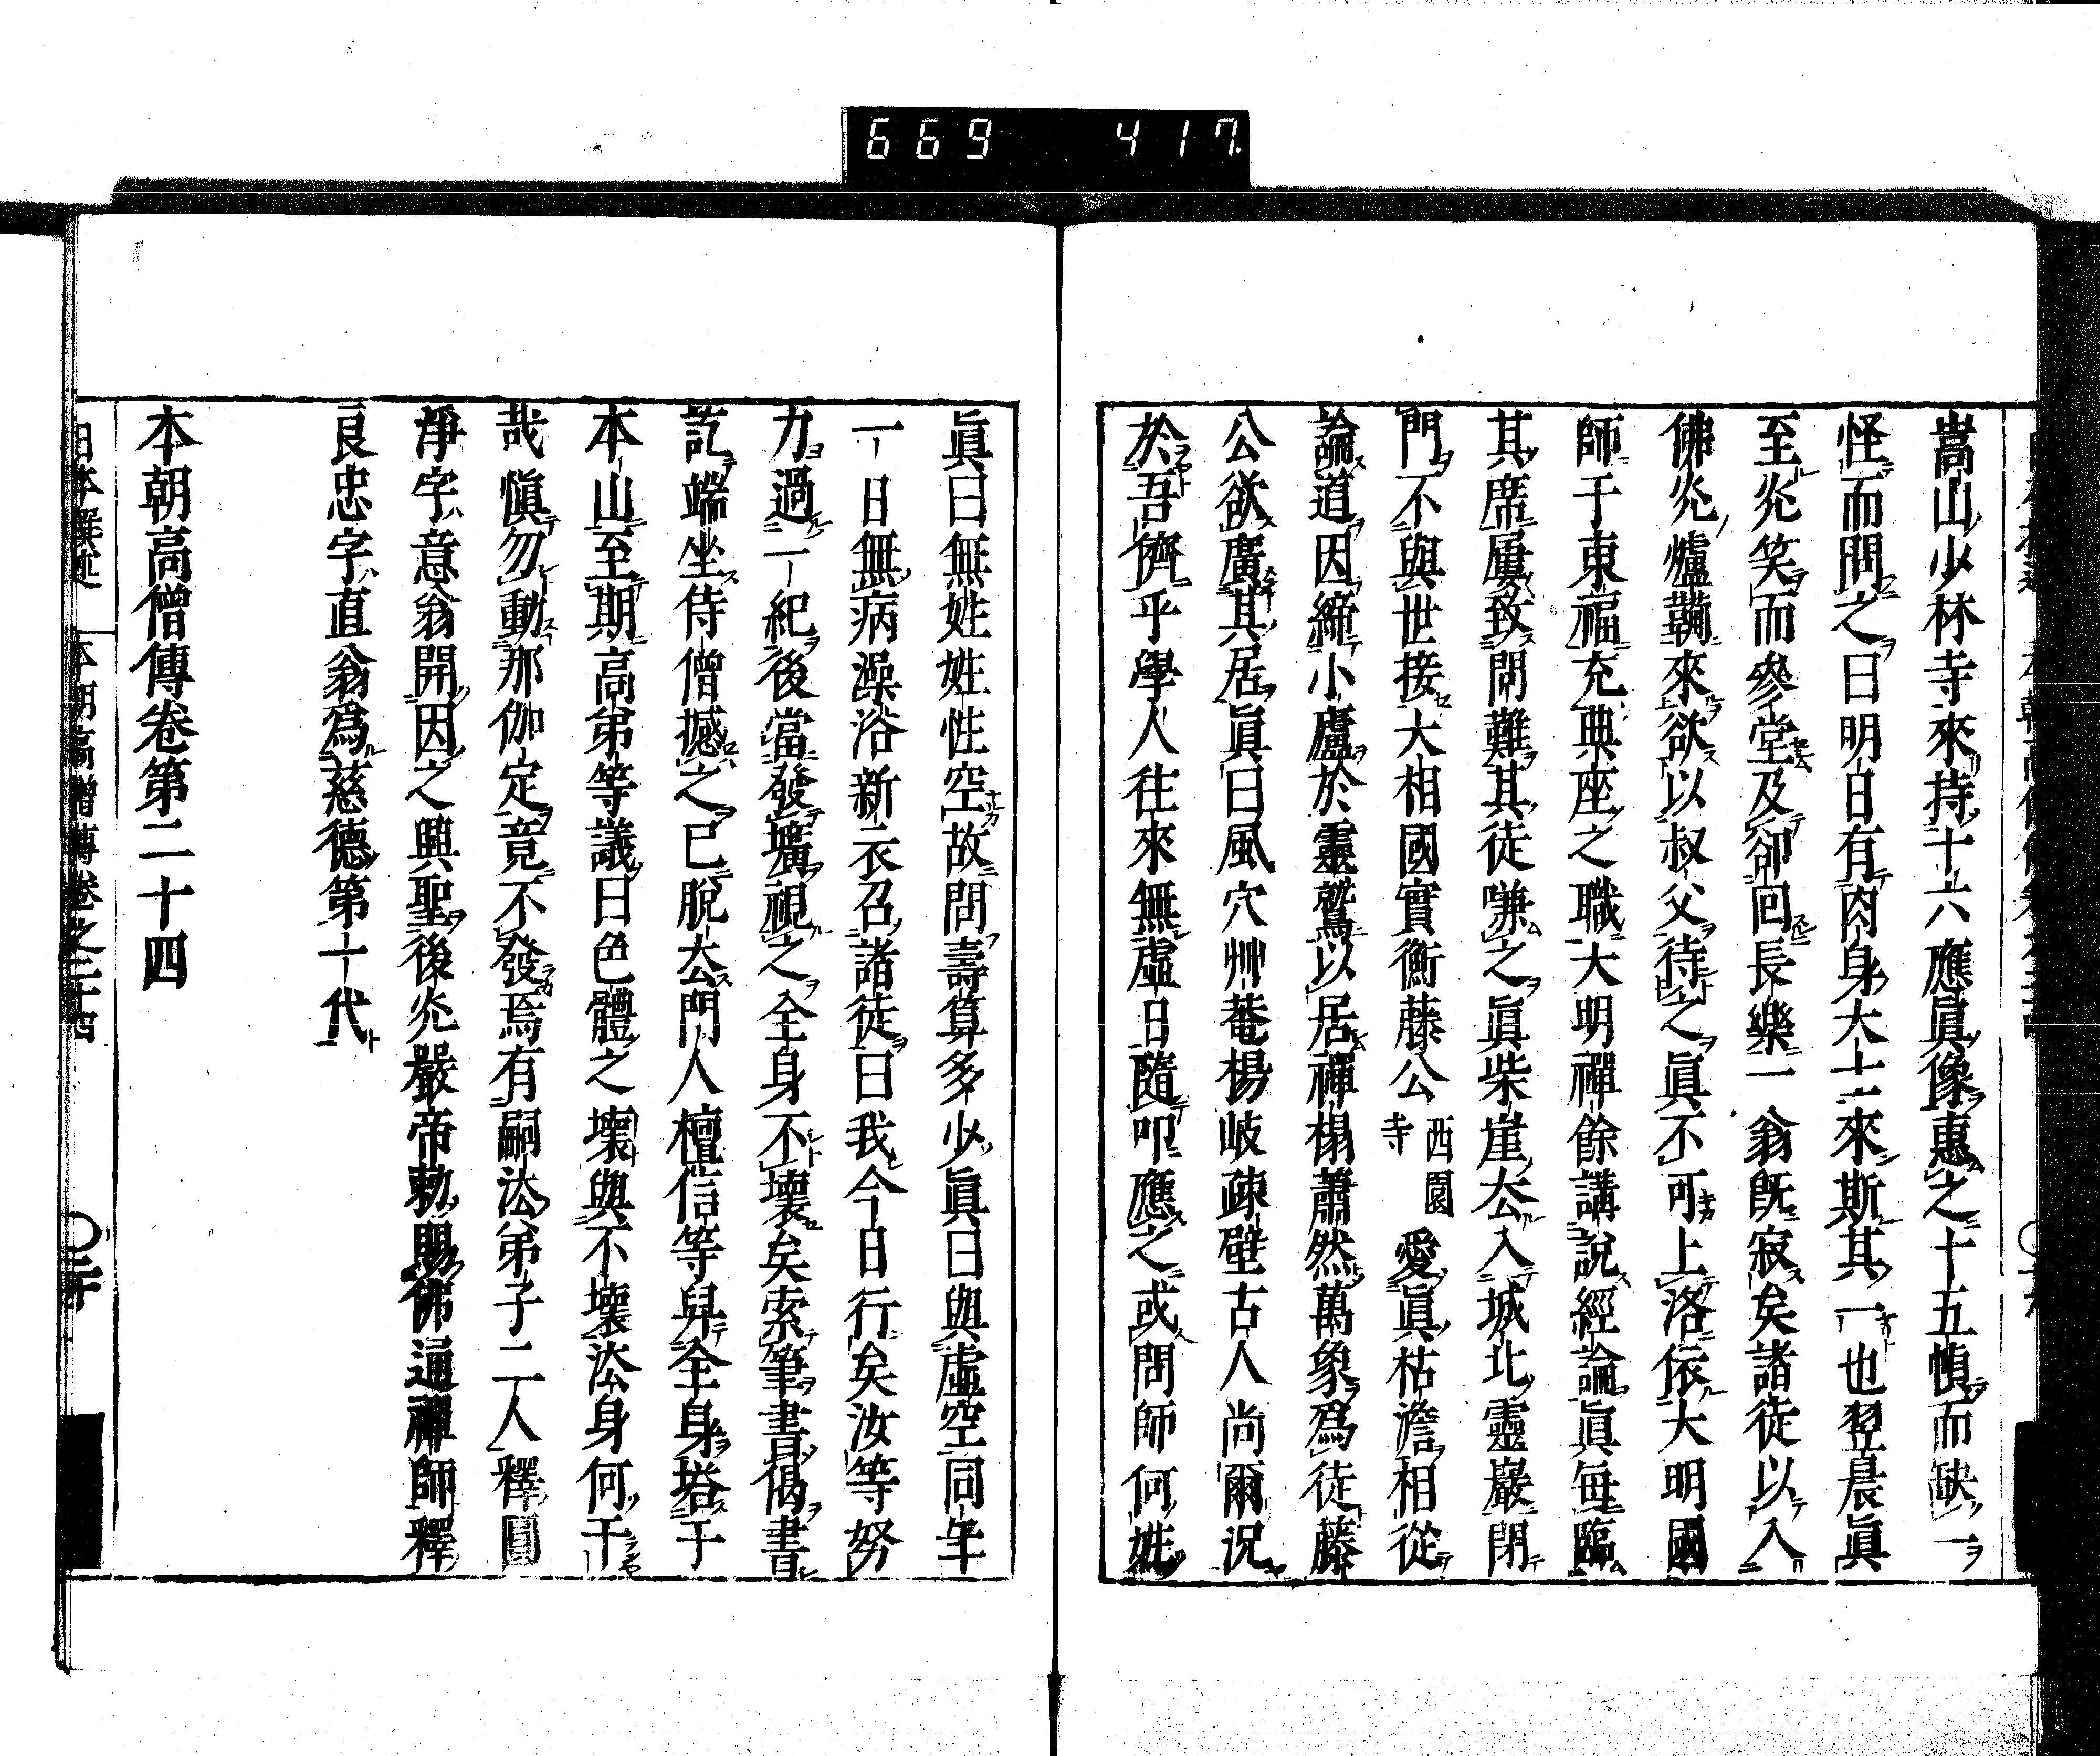 669 417
嵩山少林寺來持十六應眞像惠之十五幀而缺一
怪而問之曰明日有肉身大士來斯其一也翌晨眞
至兆笑而參堂及卻回長樂一翁既寂矣諸徒以入
佛兆爐鞴來欲以叔父待之眞不可上洛依大明國
師于東福充典座之職大明禪餘講說經論眞每臨
其席屢致問難其徒嗛之眞柴崖去入城北靈巖閉
門不與世接大相國實衡藤公西園寺愛眞枯澹相從
論道因締小廬於靈鷲以居禪榻蕭然萬象爲徒藤
公欲廣其居眞曰風穴艸菴楊岐疎壁古人尚爾況
於吾儕乎學人往來無虛日隨叩應之或問師何姓
眞曰無姓姓性空故問壽算多少眞曰與虛空同年
一日無病澡浴新衣召諸徒曰我今日行矣汝等努
力過一紀後當發壙視之全身不壞矣索筆書偈書
訖端坐侍僧撼之已脫去門人檀信等舁全身塔于
本山至期高弟等議曰色體之壞與不壞法身何干
哉愼勿動那伽定竟不發焉有嗣法弟子二人釋圓
淨字意翁開因之興聖後兆嚴帝勅賜佛通禪師釋
良忠字直翁爲慈德第十代
本朝高僧傳卷第二十四
日本撰述 本朝高僧傳卷之二十四